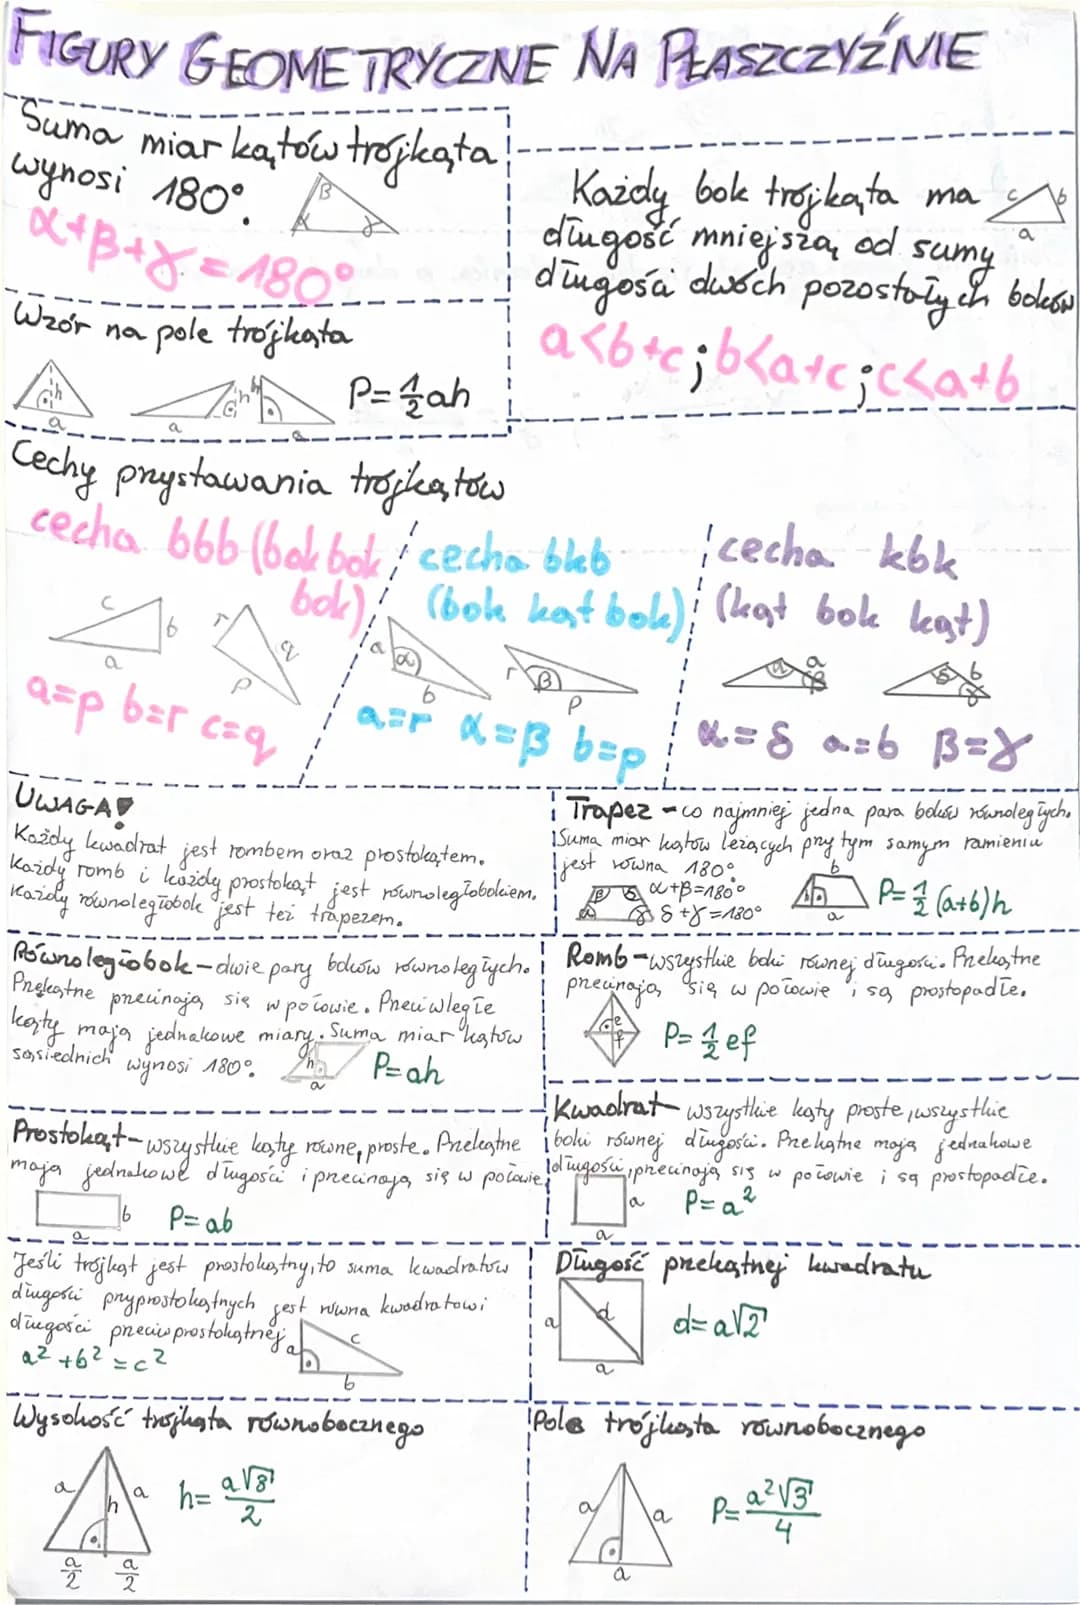 FIGURY GEOMETRYCZNE NA PŁASZCZYŹNIE
Suma miar kątów trójkąta
wynosi 180°.
β
α γ
α+β+γ=180°
Każdy bok trójkąta ma
długość mniejszą od sumy
długości dwóch pozostałych boków
c b
a
a<b+c; b<a+c; c<a+b
Wzór na pole trójkąta
h h h
a a a
P=½ah
Cechy przystawania trójkątów
cecha bbb (bok bok
bok)
c b
a
r q
p
a=p b=r c=q
cecha bkb
(bok kąt bok)
a α
b
r β
p
a=r α=β b=p
cecha kbk
(kąt bok kąt)
α a
β
δ b
γ
α=δ a=b β=γ
UWAGA!
Każdy kwadrat jest rombem oraz prostokątem.
Każdy romb i każdy prostokąt jest równoległobokiem.
Każdy równoległobok jest też trapezem.
Trapez - co najmniej jedna para boków równoległych.
Suma miar kątów leżących przy tym samym ramieniu
jest równa 180°
β δ
α γ
α+β=180°
δ+γ=180°
b
h
a
P=½(a+b)h
Równoległobok - dwie pary boków równoległych.
Przekątne przecinają się w połowie. Przeciwległe
kąty mają jednakowe miary. Suma miar kątów
sąsiednich wynosi 180°.
h
a
P=ah
Romb - wszystkie boki równej długości. Przekątne
przecinają się w połowie i są prostopadłe.
e
f
P=½ef
Prostokąt - wszystkie kąty równe, proste. Przekątne
mają jednakowe długości i przecinają się w połowie.
b
a
P=ab
Kwadrat - wszystkie kąty proste, wszystkie
boki równej długości. Przekątne mają jednakowe
długości, przecinają się w połowie i są prostopadłe.
a
a
P=a²
Jeśli trójkąt jest prostokątny, to suma kwadratów
długości przyprostokątnych jest równa kwadratowi
długości przeciwprostokątnej
a²+b²=c²
a c
b
Długość przekątnej kwadratu
a d
a
d=a√2
Wysokość trójkąta równobocznego
a h a
a/2 a/2
h= a√3/2
Pole trójkąta równobocznego
a a
a
P= a²√3/4